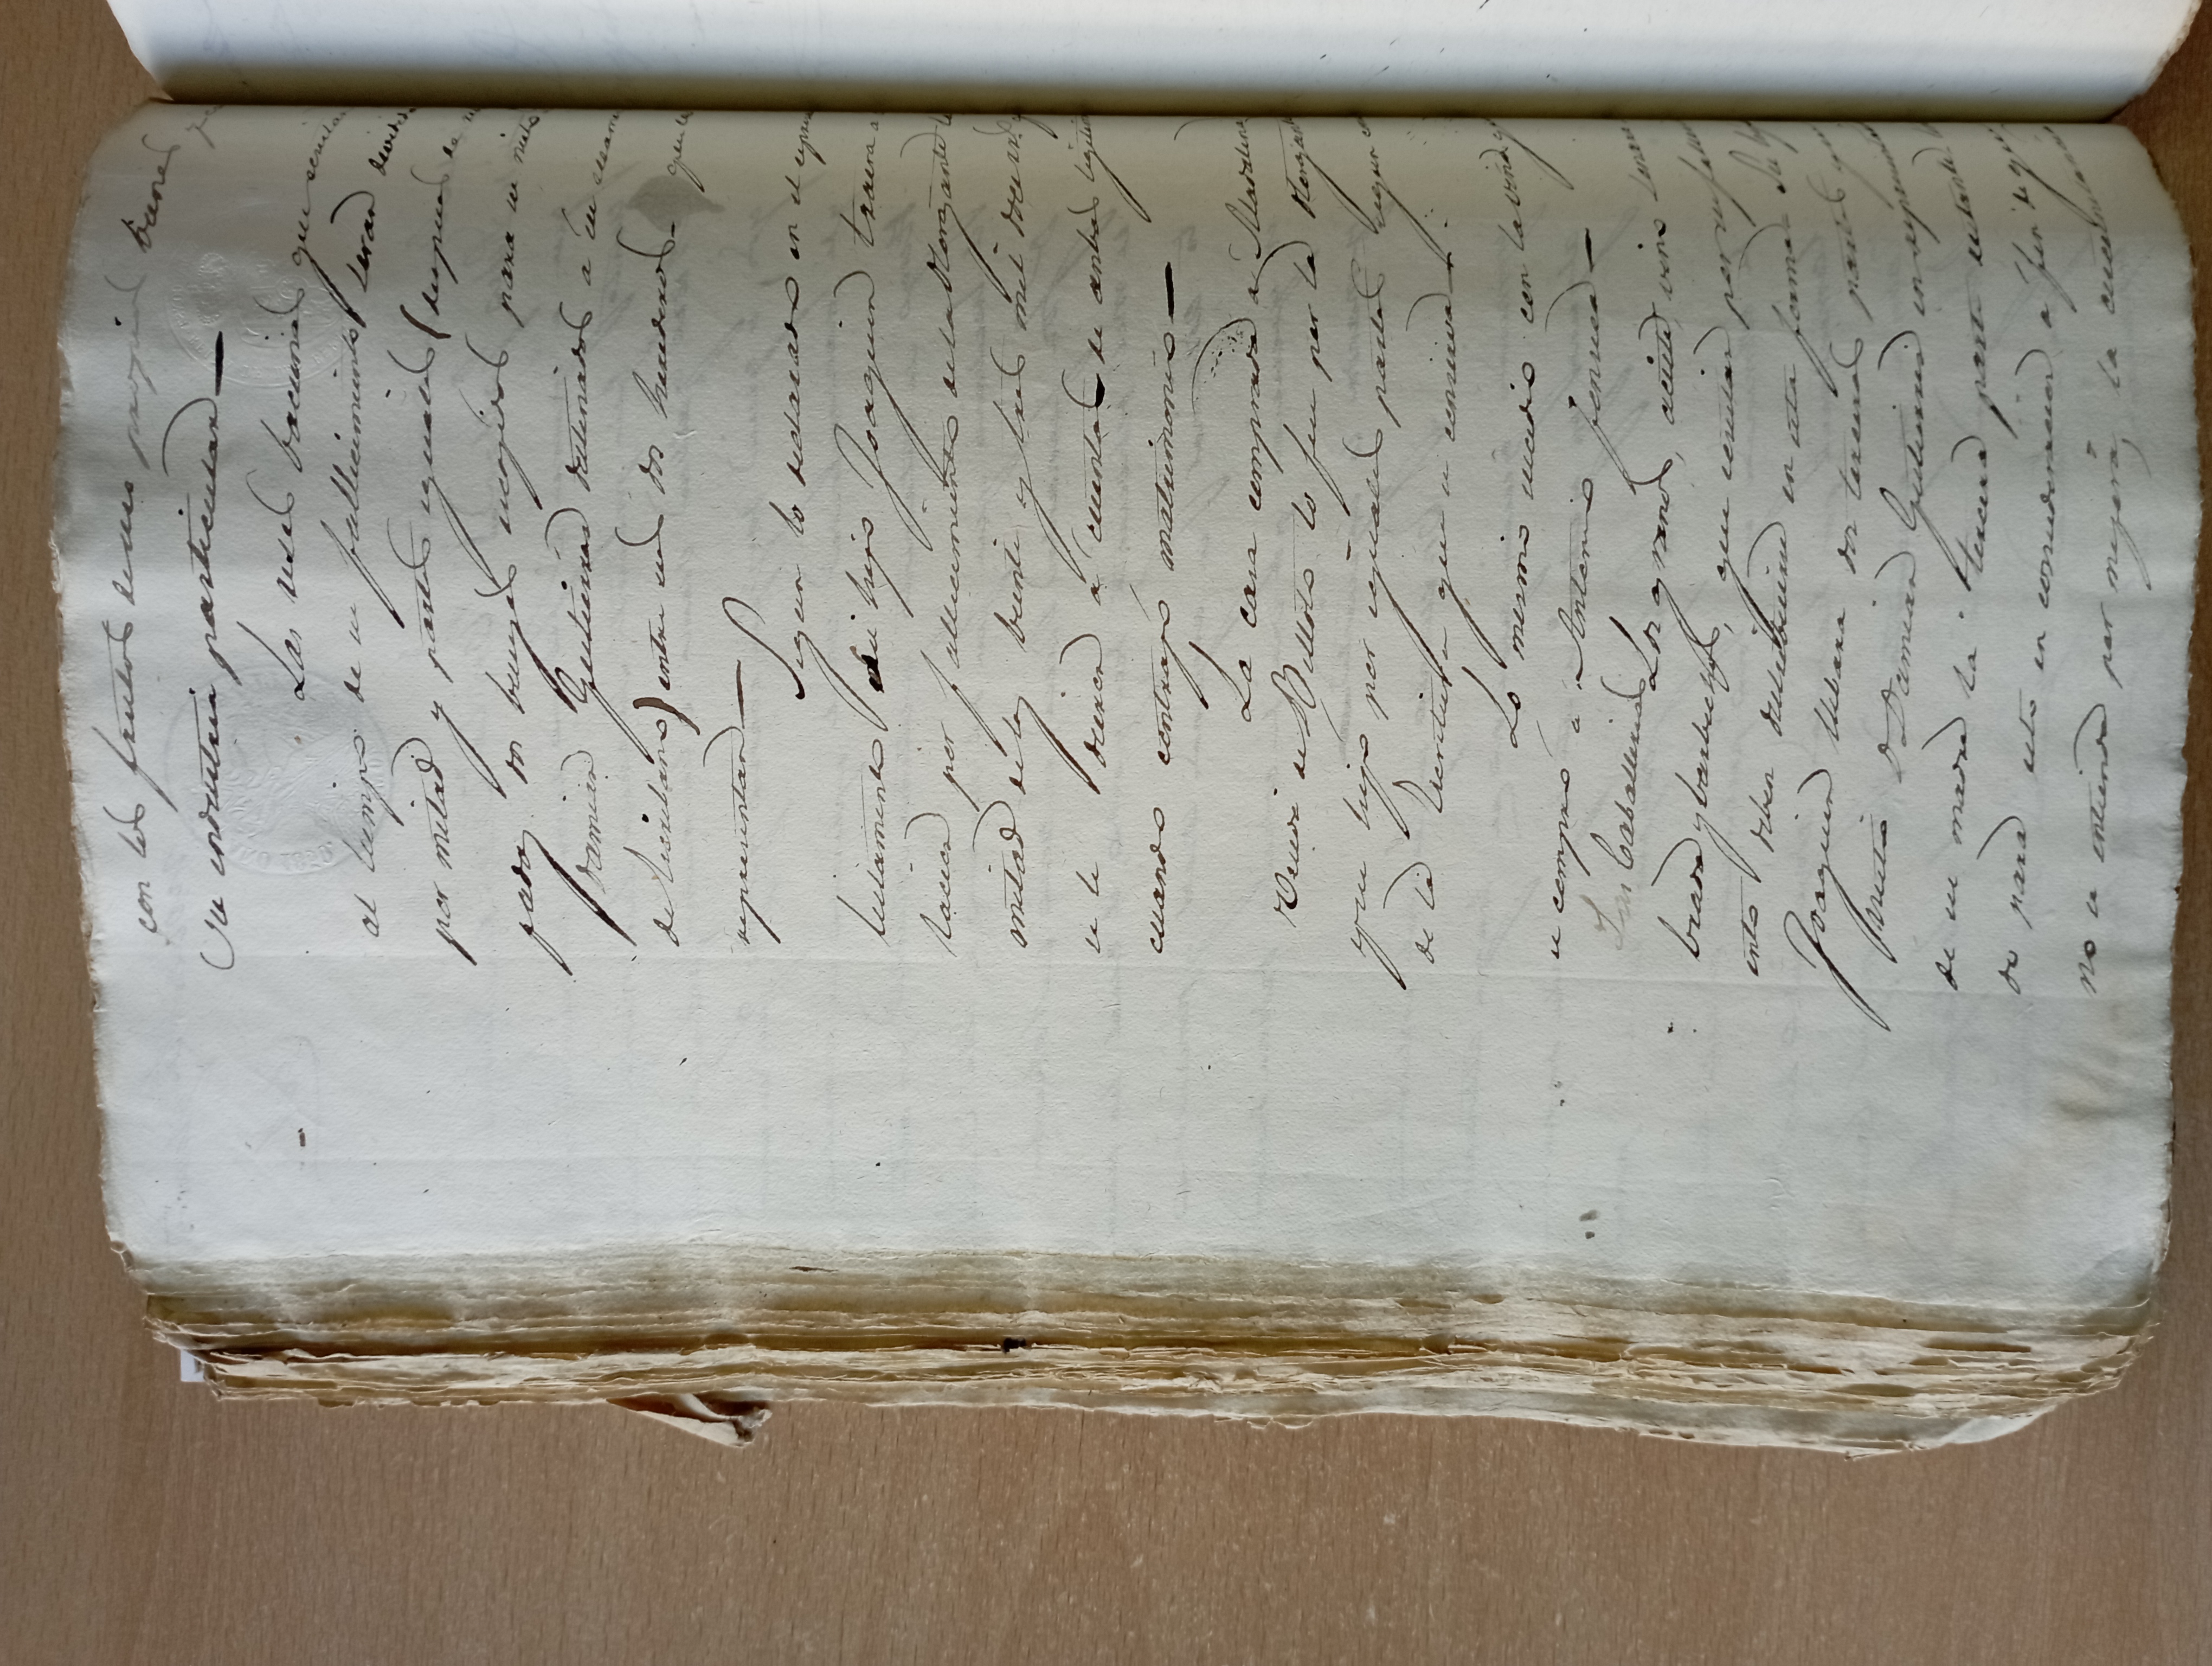 con los frutos de sus propios bienes y
su industria particular —
Las reses bacunas que
al tiempo de su fallecimiento seran
por mitad y partes iguales (despues de
dos bueyes escogidos para su nieto
Damian Gutierrez destinados a su
de Escribano) entre sus dos herederos
representan —
Segun lo declarado en el
testamento su hijo Joaquin traera a
lacion por fallecimiento de la Otorgante la
mitad de los beinte y tres mil doce rrs
se le dieron a cuenta de ambas
cuando contrajo matrimonio —
La casa comprada a Madalena
Viuda de Belloto lo fue por la Otorgante
y su hijo por iguales partes segun
de la Escritura que se conserva —
Lo mesmo sucedio con la viña
se compró a Antonio Fonseca —
Las Caballerias Los granos, aceite, vino
brada y barbechos, que resultan por su
ento deben distribuirse en esta forma = Su
Joaquin llebara dos terceras partes y su
Nieto D Damian Gutierrez en
de su madre la tercera parte restante
do para esto en consideracion a fin de que
no se entienda por mejora, la